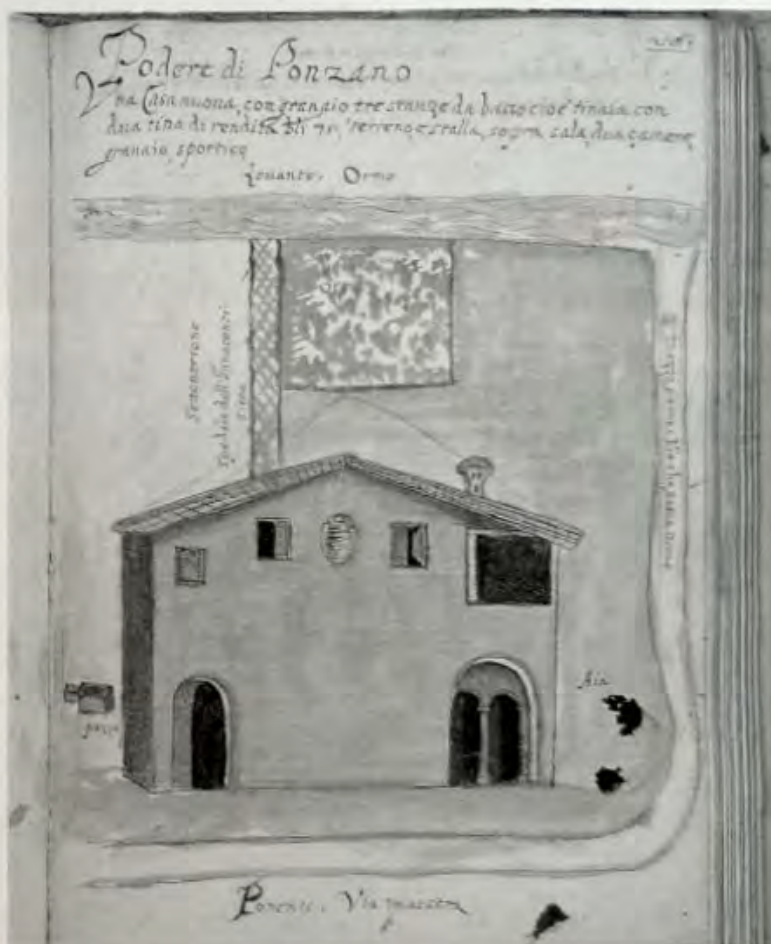 Podere di Ponzano
Una Casa nuova, con granaio tre stanze da basso cioè tinaia con
dua tina di rendita terreno e stalla, sopra sala, dua camere
granaio, sportico
Levante. Ormo
Settentrione
Spedale dell'Innocenti
Aia
pozzo
Ponente. Via maestra